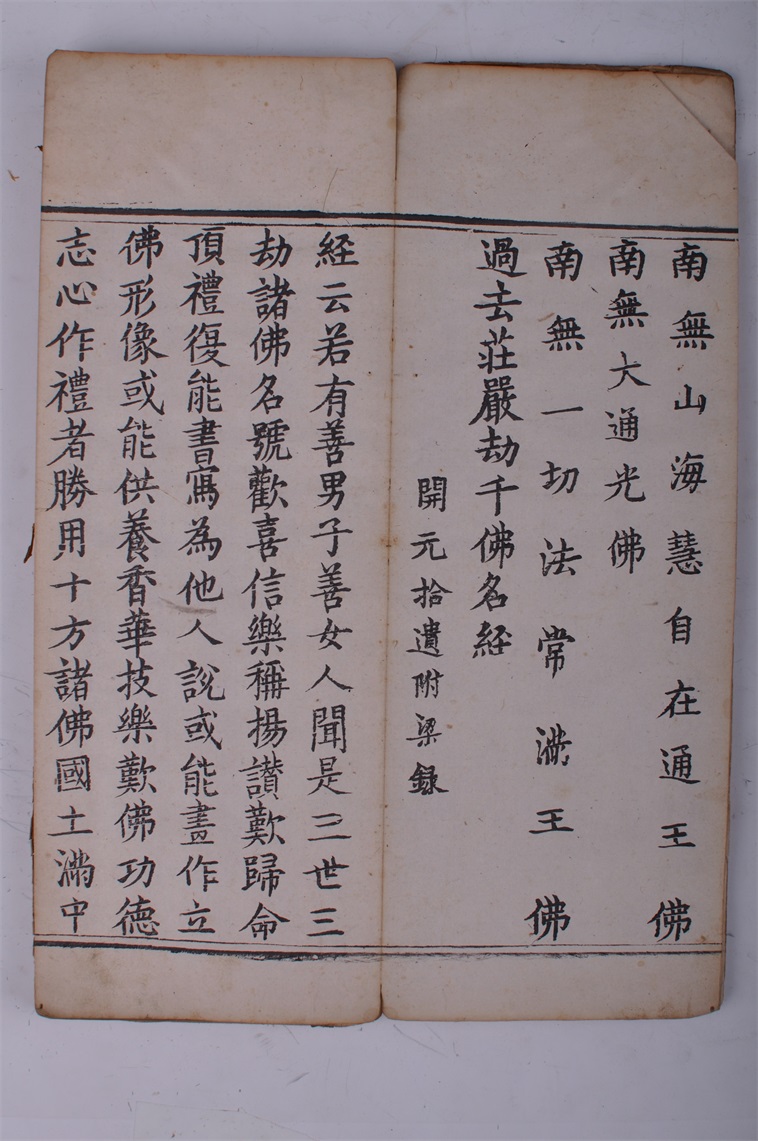 南無山海慧自在通王佛
南無大通光佛
南無一切法常滿王佛
過去莊嚴劫千佛名經
開元拾遺附梁録
経云若有善男子善女人聞是三世三
劫諸佛名號歡喜信樂稱揚讃歎歸命
頂禮復能書寫為他人說或能畫作立
佛形像或能供養香華技樂歎佛功德
志心作禮者勝用十方諸佛國土滿中